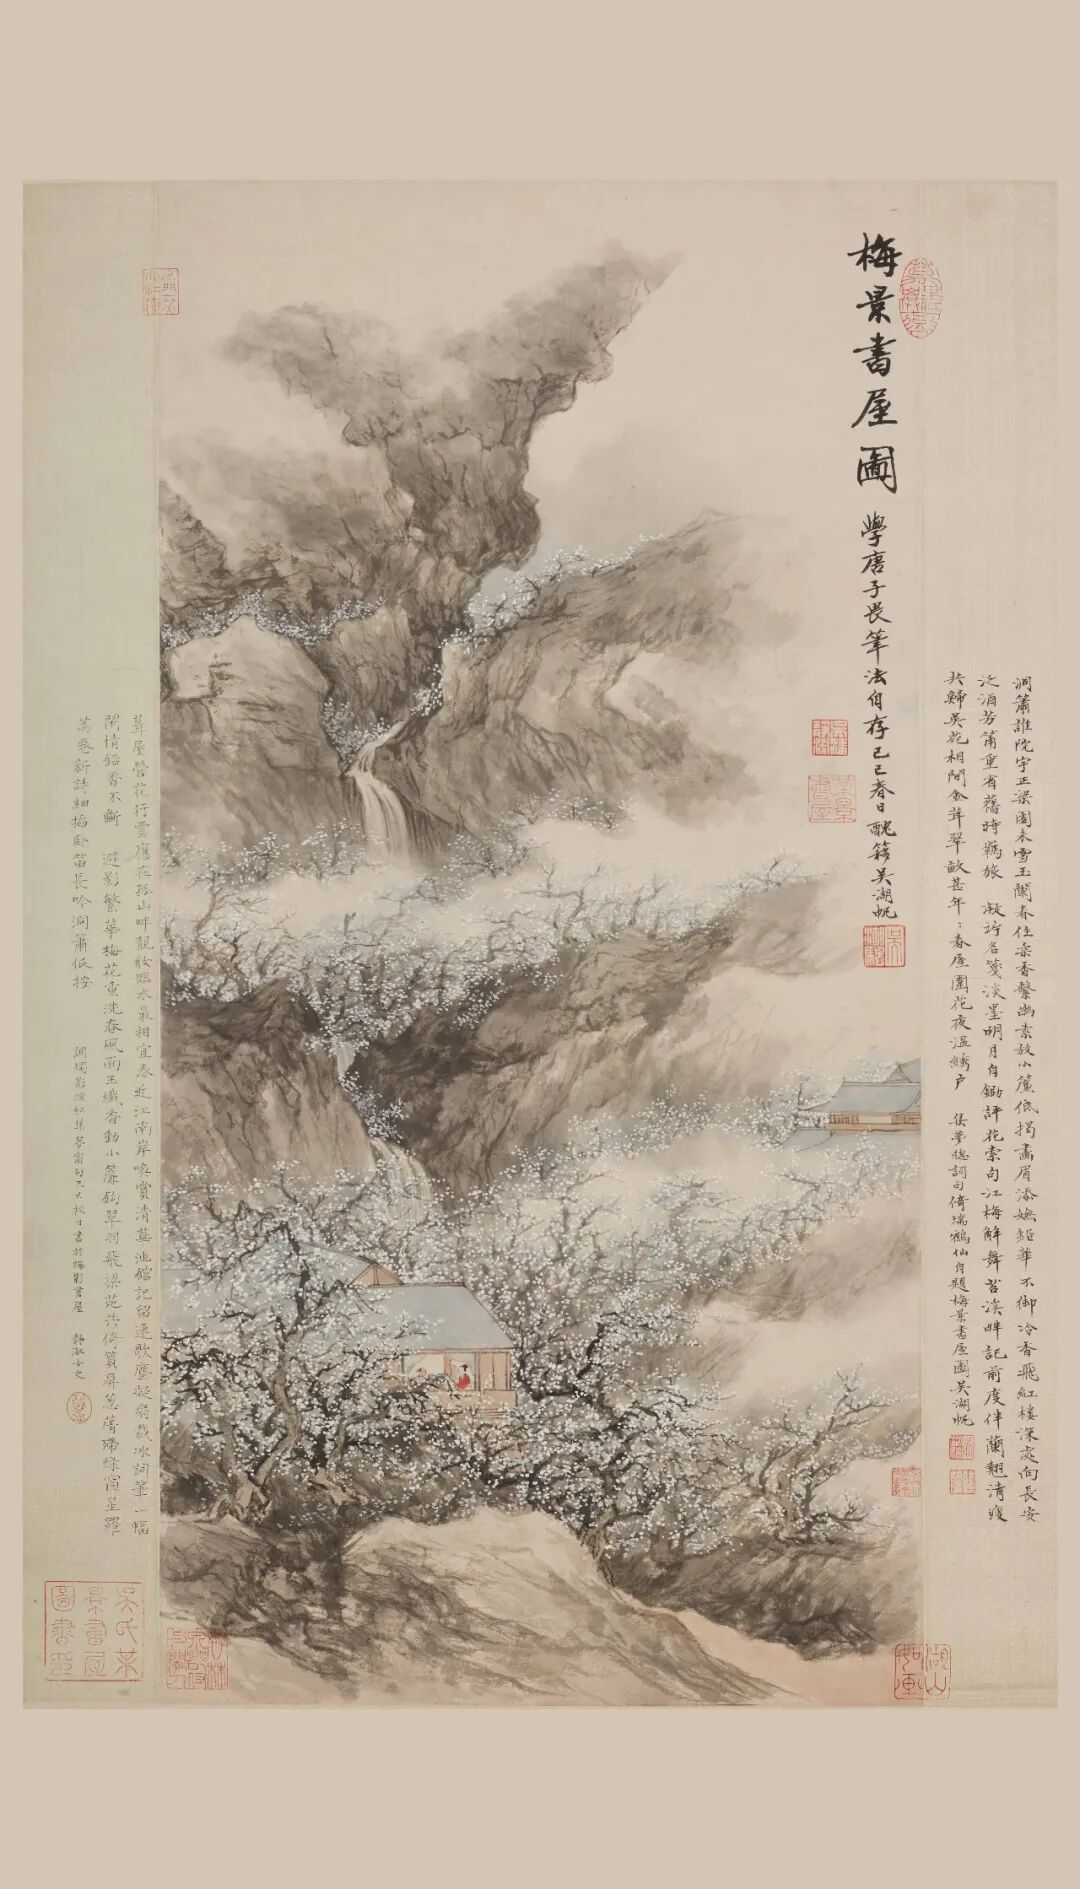 洞簫誰院宇正梁園未雪玉闌春住柔香繫幽素放小簾低揭畫眉添嫵鉛華不御冷香飛紅樓深處向長安
泛酒芳筩重省舊時羈旅 凝竚名箋淡墨明月自鋤評花索句江梅解舞苕溪畔記前度伴蘭翹清瘦
共歸吳苑相間金茸翠畝甚年〻春屋圍花夜溫繡戶 集夢牕詞句倚瑞鶴仙自題梅景書屋圖吳湖帆
梅景書屋圖 學唐子畏筆法自存己巳春日醜簃吳湖帆
葺屋營花行雲應在孤山畔靚妝臨水最相宜春近江南岸喚賞清華池館記留連歌塵凝扇裁冰詞筆一幅
閑情鉛香不斷 避影繁華梅花重洗春風面玉纖香動小簾鉤翠羽飛梁苑共倚篔屏蔥蒨掃綠窗星羅
萬卷新詩細掐臥笛長吟洞簫低按 調燭影搖紅集夢窗句己巳秋日書於梅影書屋 靜淑女史
湖山如画
吳氏某景書屋圖書印